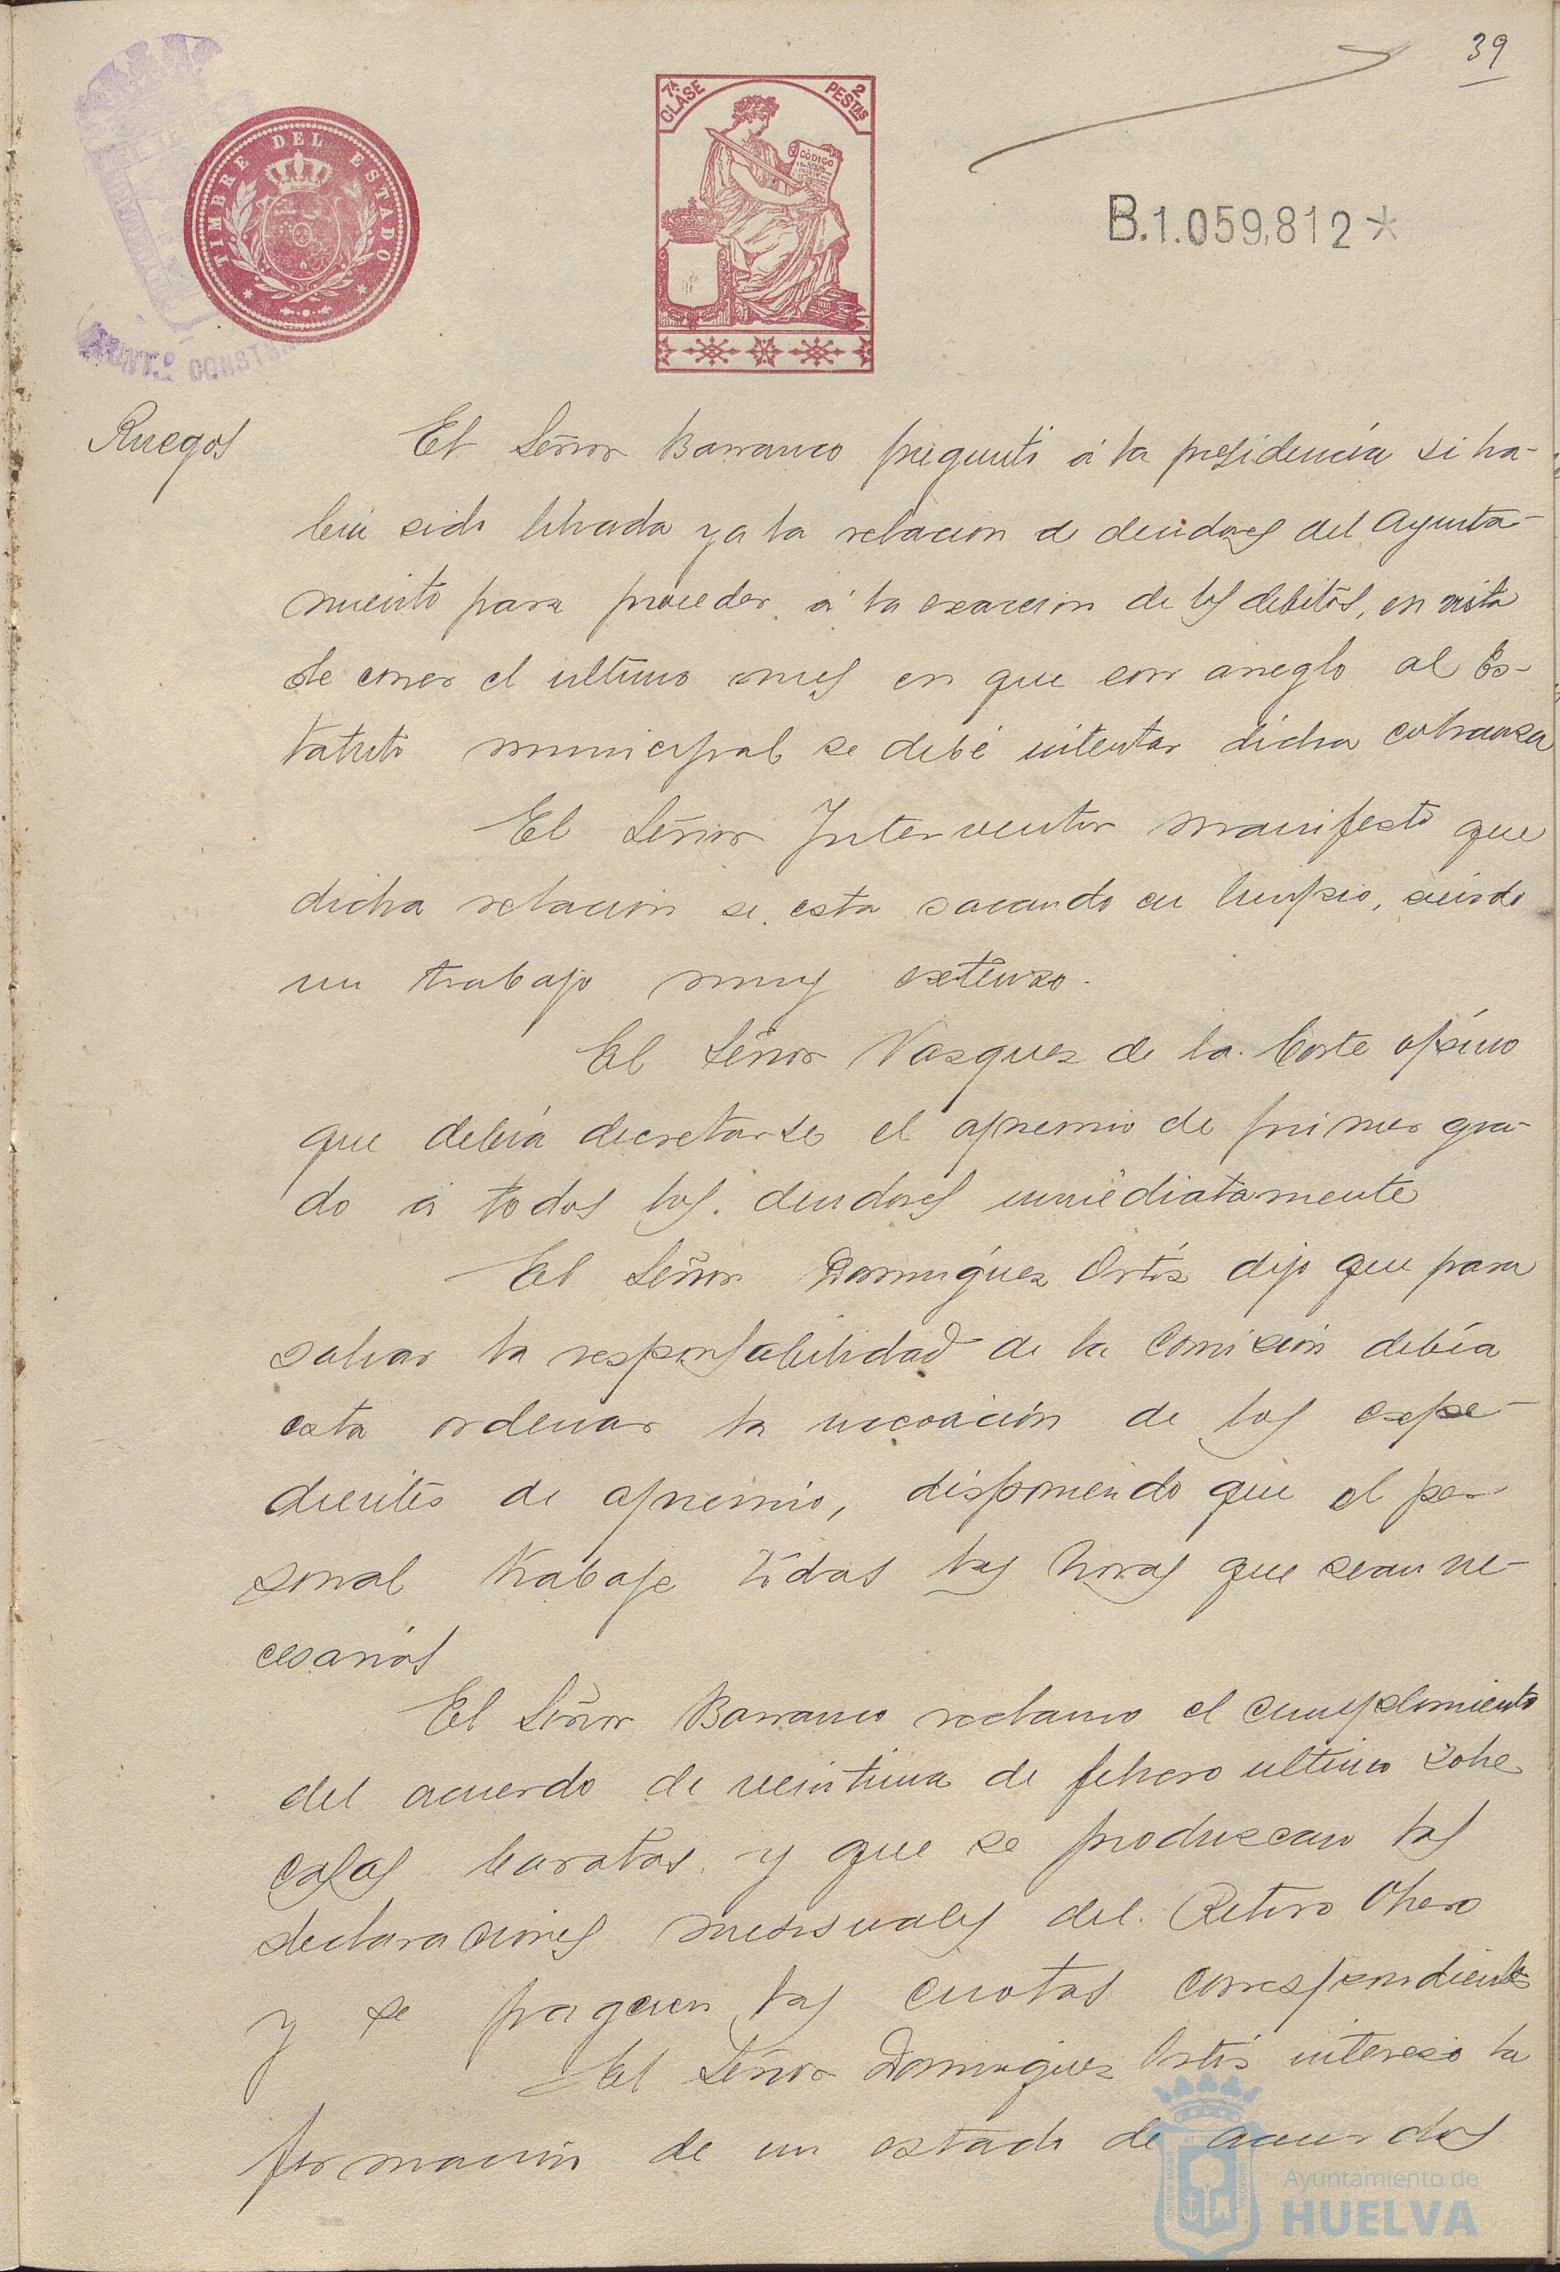 39
7ª CLASE
2 PESTAS
TIMBRE DEL ESTADO
CÓDIGO
B.1.059,812*
AYUNT.º CONST
Ruegos
El Señor Barranco preguntó á la presidencia si ha-
bia sido librada ya la relacion de deudores del Ayunta-
miento para proceder á la exaccion de los debitos, en vista
de correr el ultimo mes en que con arreglo al Es-
tatuto municipal se debe intentar dicha cobranza
El Señor Interventor manifestó que
dicha relacion se esta sacando en limpio, siendo
un trabajo muy extenso.
El Señor Vazquez de la Corte opino
que debia decretarse el apremio de primer gra-
do á todos los deudores inmediatamente
El Señor Dominguez Ortiz dijo que para
salvar la responsabilidad de la Comisión debía
esta ordenar la incoación de los expe-
dientes de apremio, disponiendo que el per-
sonal trabaje todas las horas que sean ne-
cesarias
El Señor Barranco reclamo el cumplimiento
del acuerdo de veintiuna de febrero ultimo sobre
casas baratas y que se produzcan las
declaraciones mensuales del Retiro Obrero
y se paguen las cuotas correspondientes
El Señor Dominguez Ortiz intereso la
formación de un estado de acuerdos
Ayuntamiento de
HUELVA